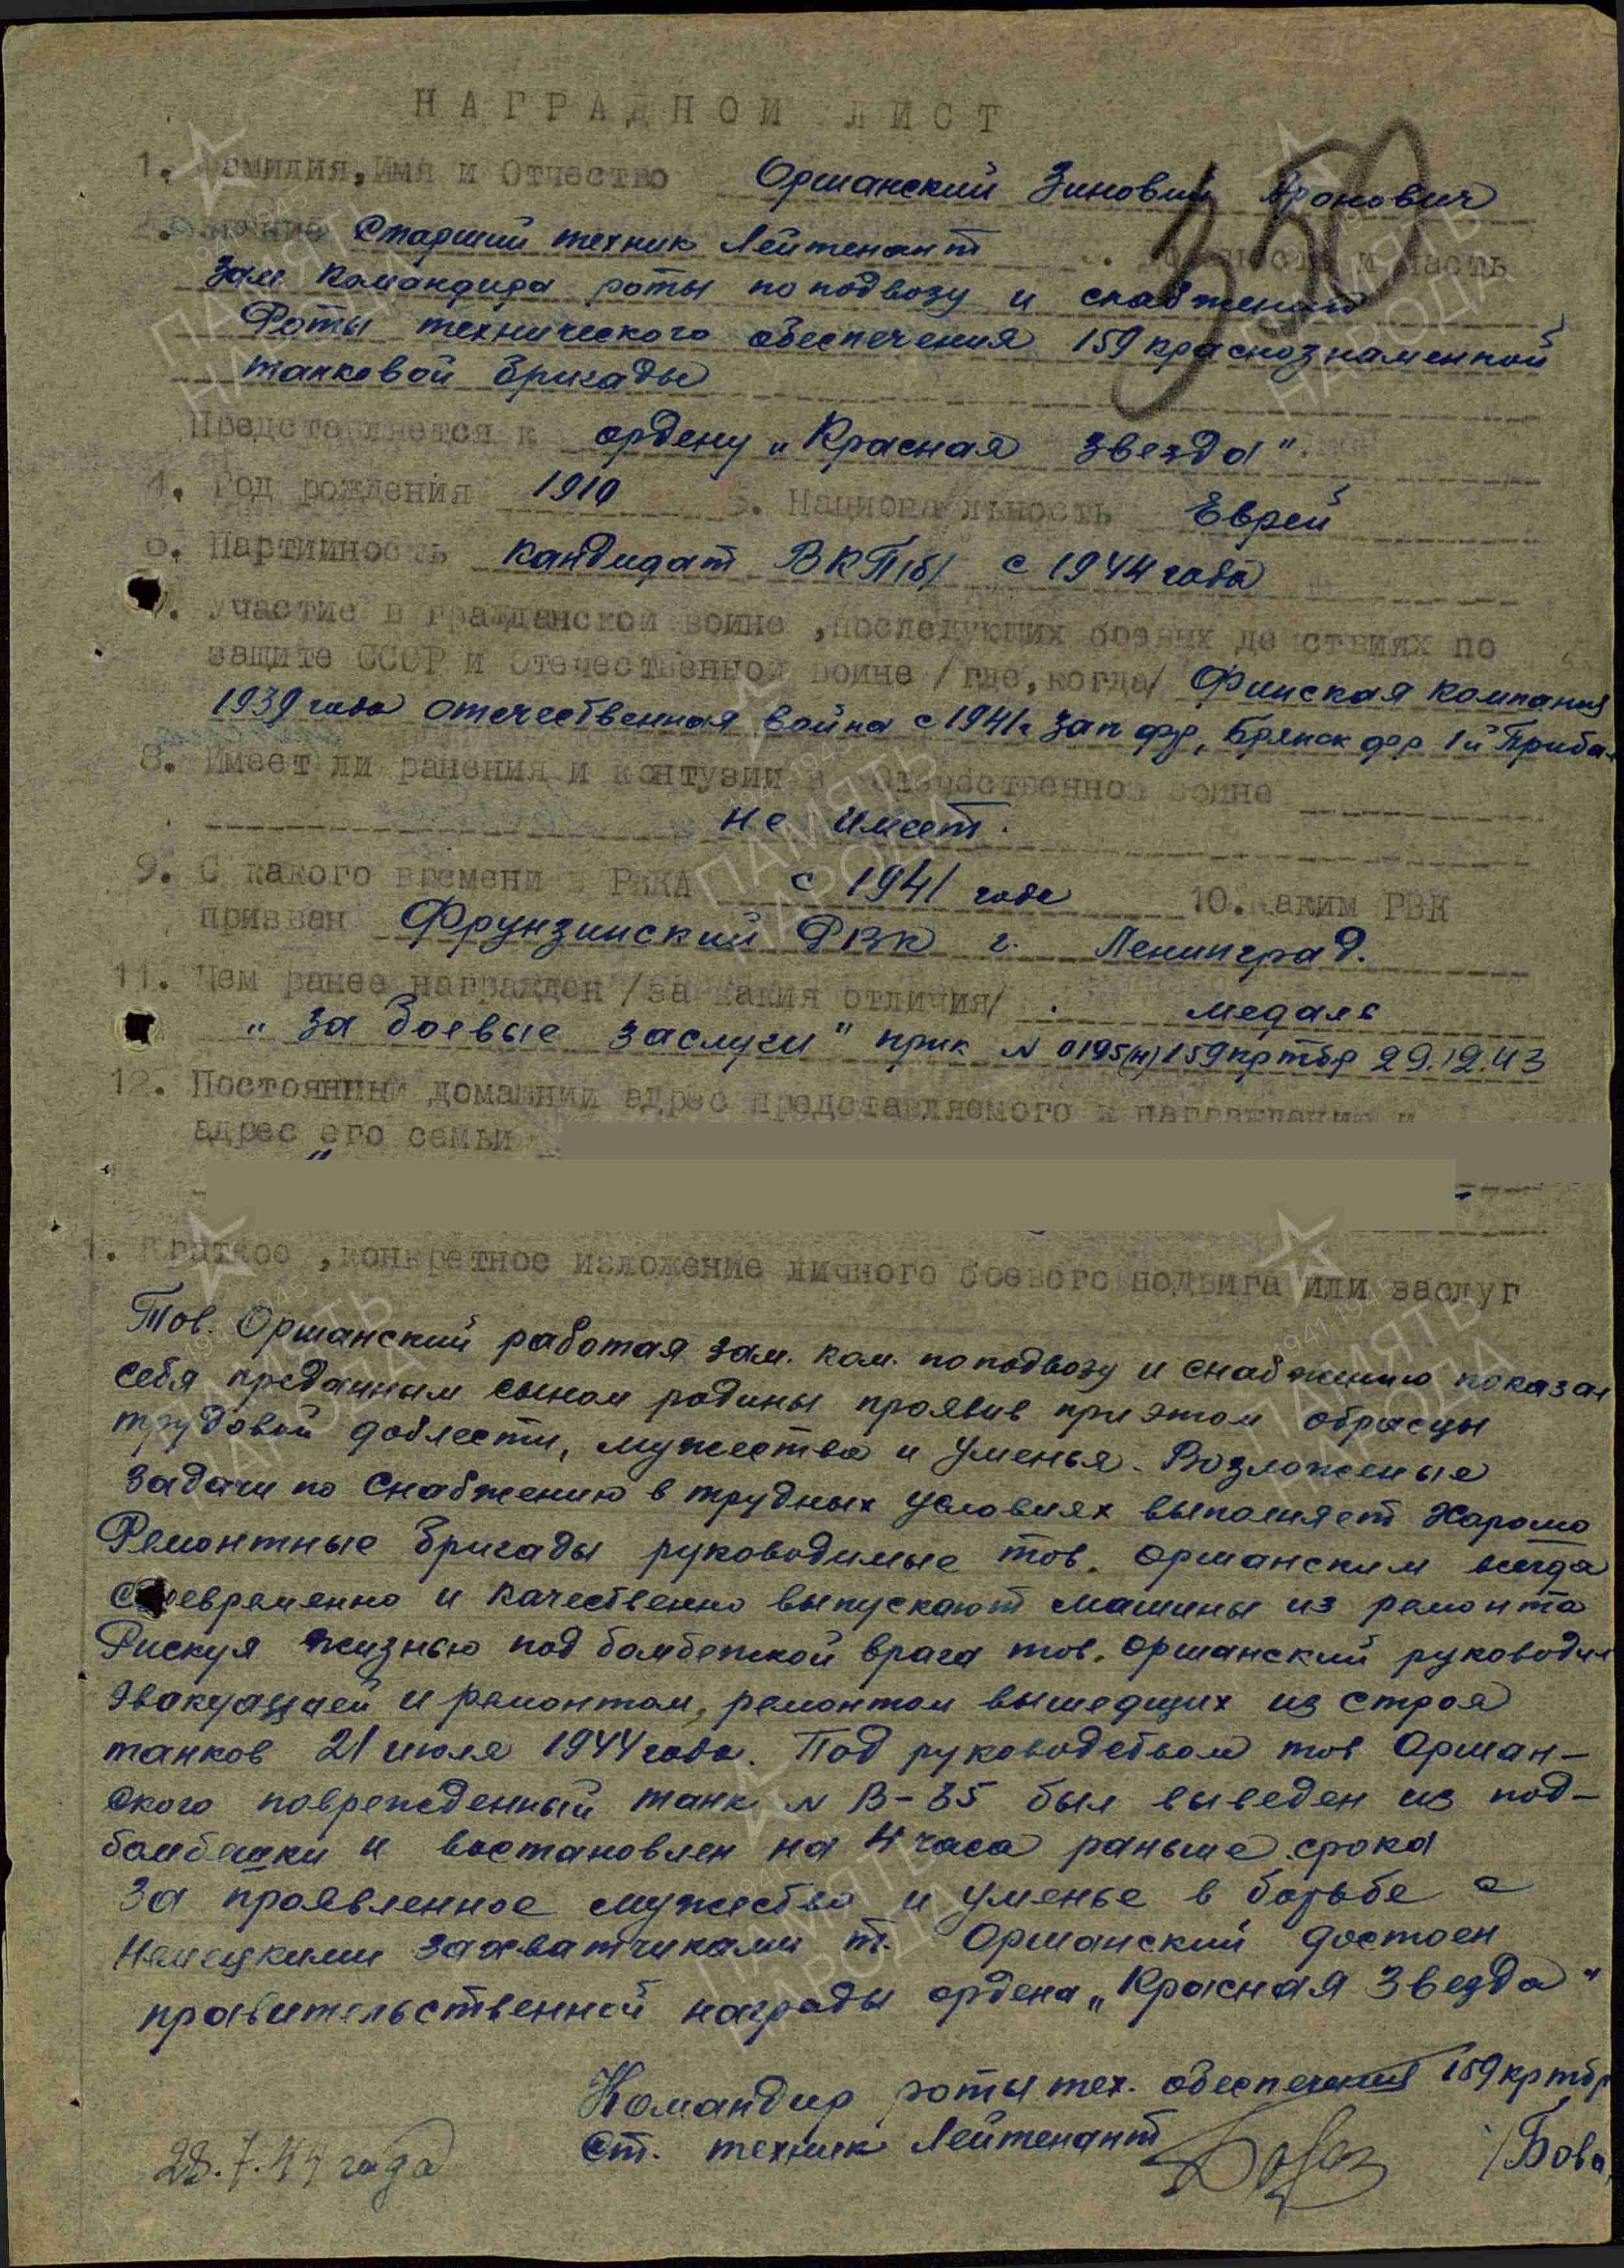 НАГРАДНОЙ ЛИСТ
350
1. Фамилия, Имя и Отчество Оршанский Зиновий Аронович
Старший техник Лейтенант должность и часть
Зам командира роты по подвозу и снабжению
Роты технического обеспечения 159 краснознаменной
танковой бригады
Представляется к ордену „Красная звезда".
4. Год рождения 1910 5. Национальность Еврей
6. Партийность кандидат ВКП/б/ с 1944 года
7. Участие в гражданской войне ,последующих боевых действиях по
защите СССР и отечественной войне /где, когда/ Финская компания
1939 года отечественная война с 1941г Зап фр, Брянск фр 1й Приба-
8. Имеет ли ранения и контузии в Отечественной войне
не имеет.
9. С какого времени в РККА с 1941 года 10. Каким РВК
призван Фрунзинский РВК г. Ленинград.
11. Чем ранее награжден /за какия отличия/ медаль
„за боевые заслуги" прик N 0195(н) 159 кртбр 29.12.43
12. Постоянный домашний адрес представляемого к награждению и
адрес его семьи
1. Краткое ,конкретное изложение личного боевого подвига или заслуг
Тов. Оршанский работая зам. ком. по подвозу и снабжению показал
себя преданным сыном родины проявив при этом образцы
трудовой доблести, мужества и уменья. Возложеные
задачи по снабжению в трудных условиях выполняет хорошо
Ремонтные бригады руководимые тов. Оршанским всегда
своевременно и качественно выпускают машины из ремонта
Рискуя жизнью под бомбежкой врага тов. Оршанский руководил
эвакуацией и ремонтом, ремонтом вышедших из строя
танков 21 июля 1944 года. Под руководством тов Оршан-
ского поврежденный танк N В-35 был выведен из под-
бомбежки и востановлен на 4 часа раньше срока
За проявленное мужество и уменье в борьбе с
немецкими захватчиками т. Оршанский достоен
правительственной награды ордена „Красная Звезда"
Командир роты тех. обеспечения 159 кртбр
Ст. техник Лейтенант /Бова
28.7.44 года
ПАМЯТЬ НАРОДА
1941-1945